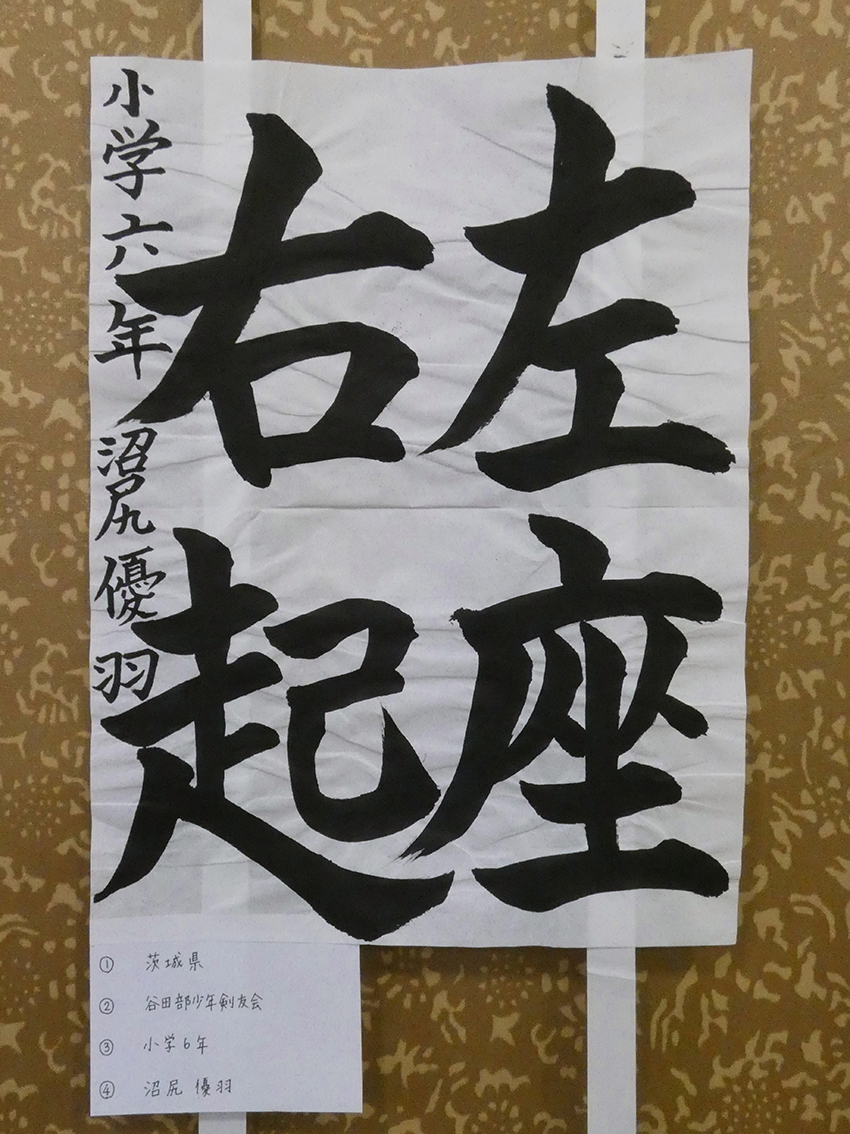 左座
右起
小学六年 沼尻優羽
① 茨城県
② 谷田部少年剣友会
③ 小学6年
④ 沼尻 優羽